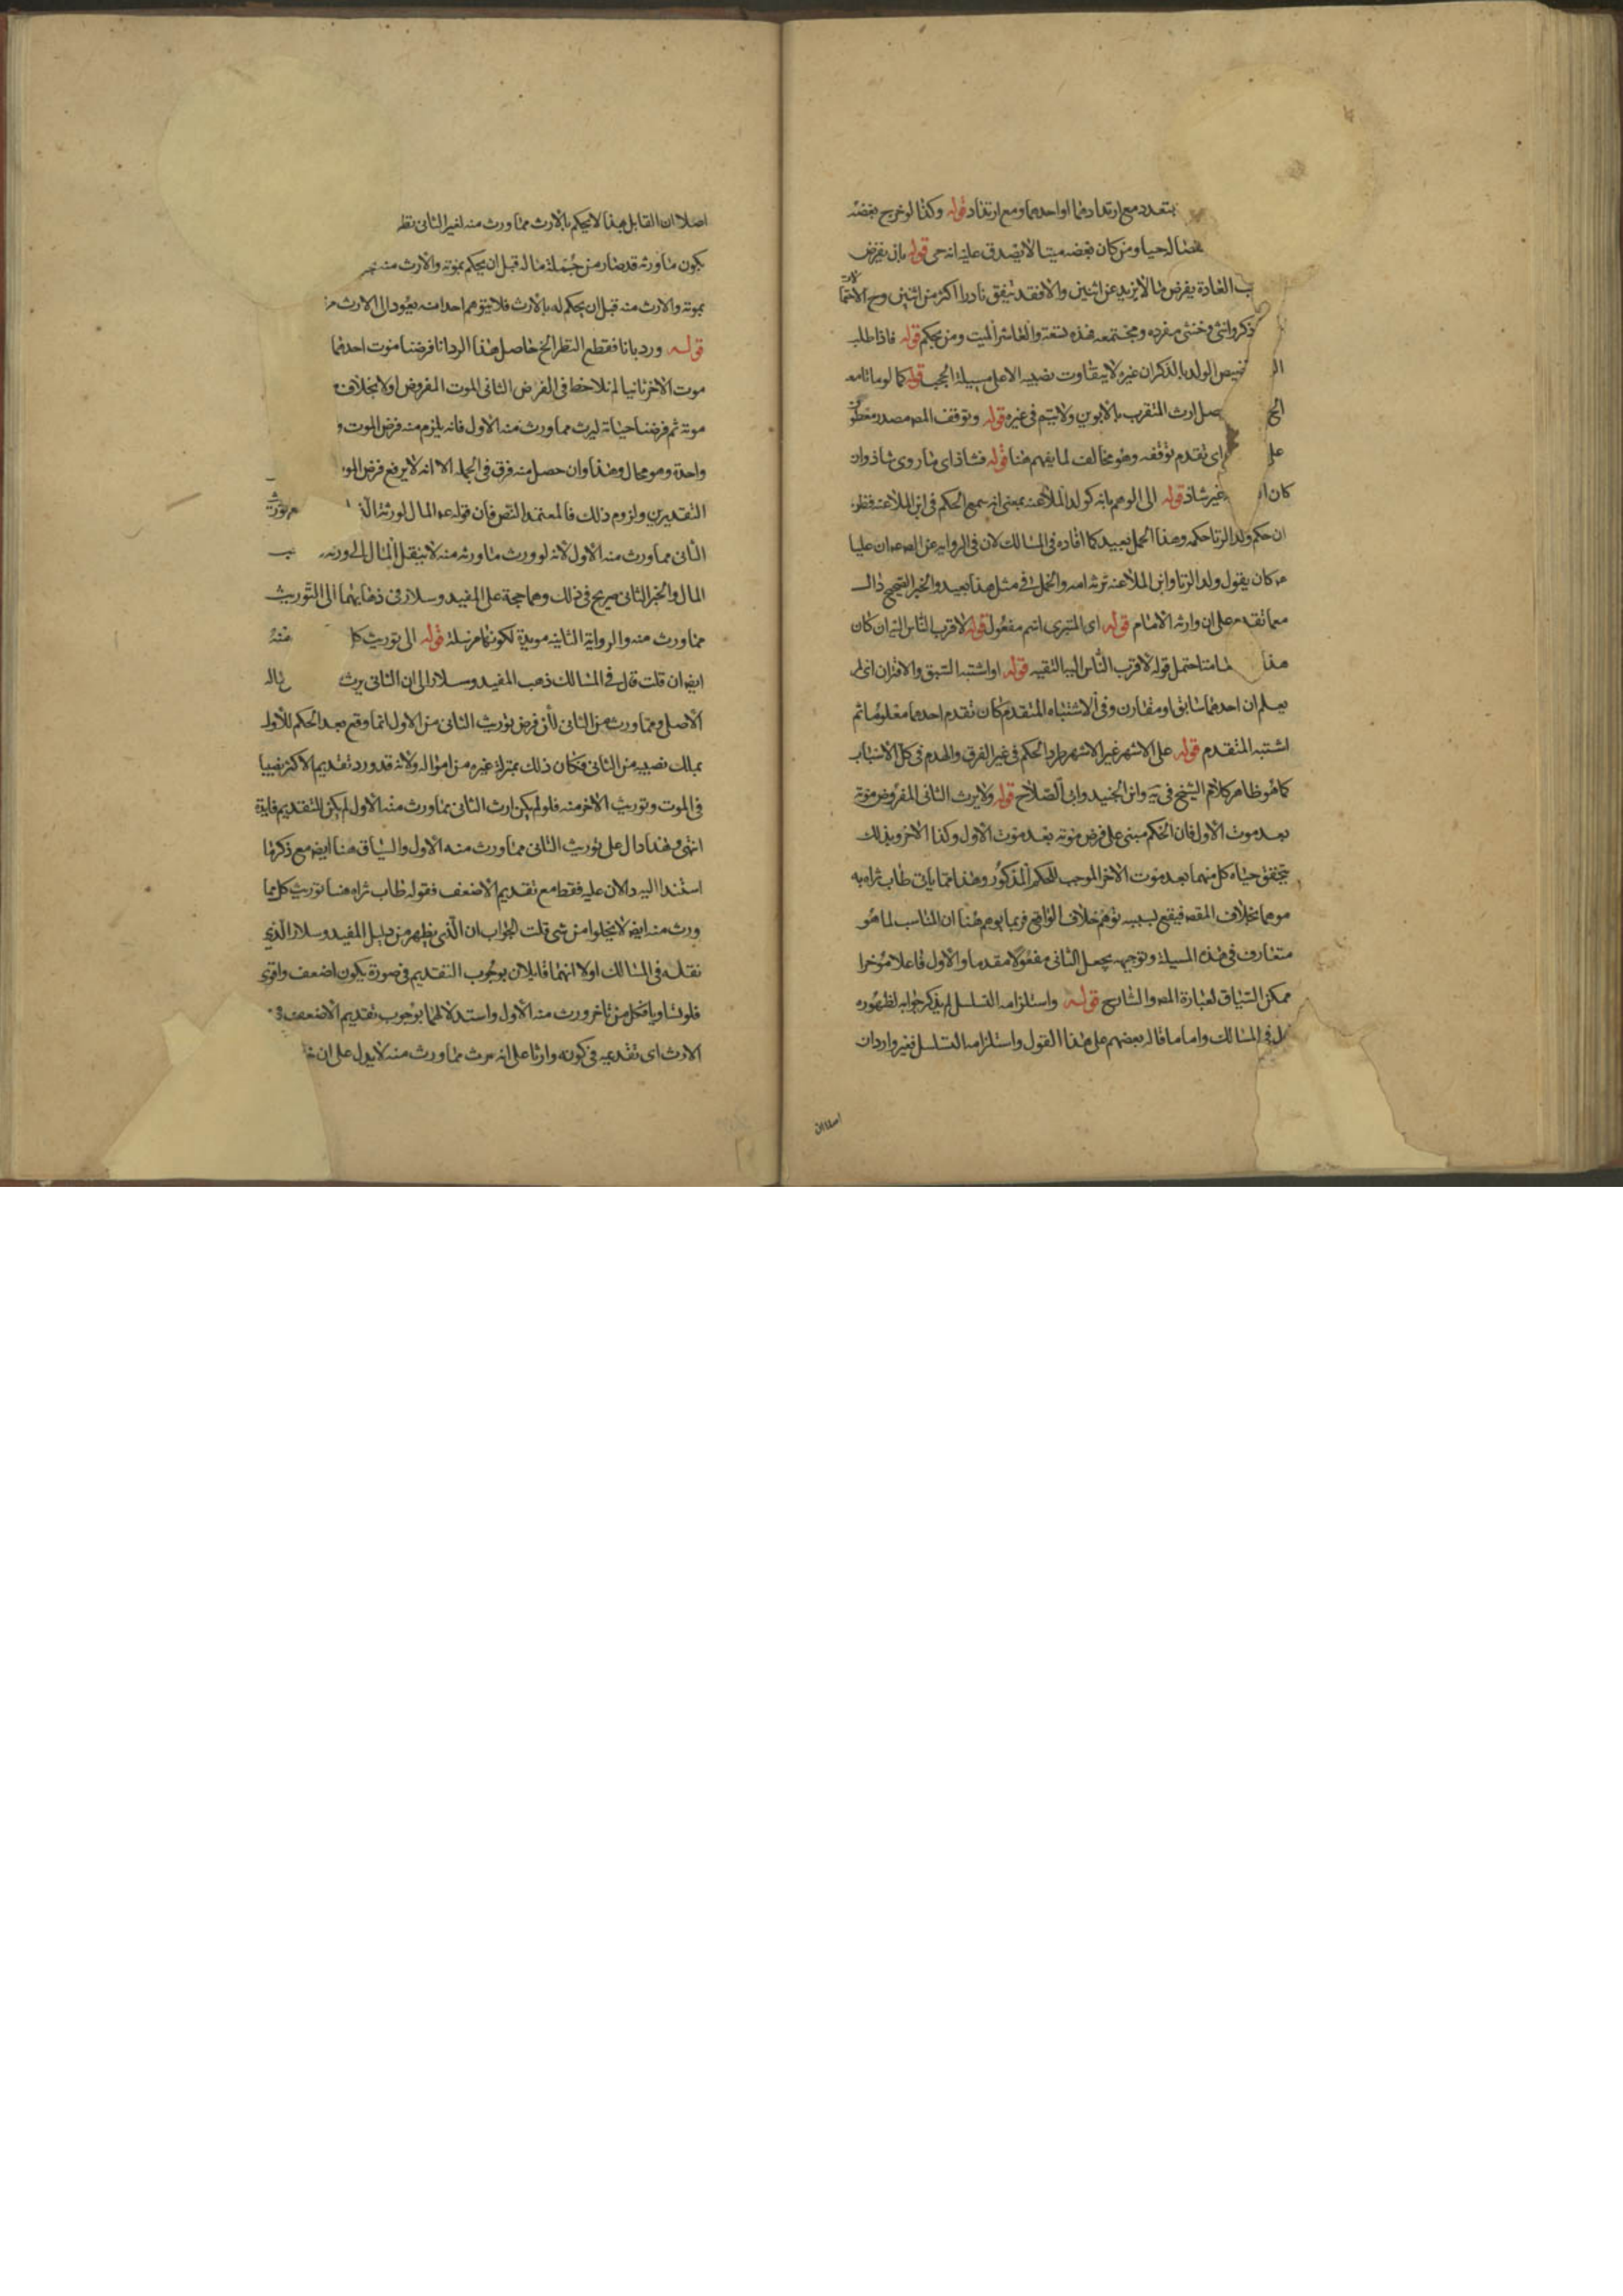 يتعدد مع ارتدادهما او احدهما ومع ارتداد قوله وكذا لو خرج بعضه
حيا ومن كان بعضه ميتا لا يصدق عليه انه حي قوله بان يفرض
العادة يفرض ما لا يزيد عن اثنين والا فقد يتفق نادرا اكثر من اثنين وح
ذكر وانثى وخنثى منفرده ومجتمعه فهذه تسعة والعاشر الميت ومن يحكم قوله فاذا طلب
الولد بالذكران غيره لا يتفاوت نصيبه الاعلى سبيله الحجب قوله كما لو ماتا معه
ارث المتقرب بالابوين ولا يتم في غيره قوله وتوقف المص مصدر
على اى تقدم توقفه وهو مخالف لما يفهم هنا قوله فشاذ اى ما روى شاذ وان
كان غير شاذ قوله الى الوهم بانه كولد الملاعنه بمعنى انه سمع الحكم في ابن الملاعنه فظن
ان حكم ولد الزنا حكمه وهذا الحمل بعيد كما افاده في المسالك لان في الرواية عن ان عليا
ع كان يقول ولد الزنا وابن الملاعنه ترثه امه والحمل في مثل هذا بعيد والخبر الصحيح دال
مما تقدم على ان وارثه الامام قوله اى المتبرى اسم مفعول قوله لاقرب الناس اليه ان كان
هذا احتمل قوله لاقرب الناس اليه التقيه قوله او اشتبه السبق والاقتران اى لم
يعلم ان احدهما سابق او مقارن وفي الاشتباه المتقدم كان تقدم احدهما معلوما ثم
اشتبه المتقدم قوله على الاشهر غير الاشهر طرد الحكم في غير الغرق والهدم في كل الاسباب
كما هو ظاهر كلام الشيخ في يه وابن الجنيد وابى الصلاح قوله ولا يرث الثانى المفروض موته
بعد موت الاول فان الحكم مبنى على فرض موته بعد موت الاول وكذا الاخر وبذلك
يتحقق حياة كل منهما بعد موت الاخر الموجب للحكم المذكور وهذا مما ياتى طاب ثراه به
موهما بخلاف المقصد فيقع بسببه توهم خلاف الواقع فربما يوهم هنا ان المناسب لما هو
متعارف في هذه المسيلة وتوجيهه بجعل الثانى مفعولا مقدما والاول فاعلا مؤخرا
ممكن السياق لعبارة المص والشارح قوله واستلزامه التسلسل لم يذكر جوابه لظهوره
في المسالك واما ما قاله بعضهم على هذا القول واستلزامه التسلسل فغير وارد ان
اصلا ان
اصلا ان القايل بهذا لا يحكم بالارث مما ورث منه لغير الثانى
يكون ما ورثه قد صار من جملة ماله قبل ان يحكم بموته والارث منه
بموته والارث منه قبل ان يحكم له بالارث فلا يتوهم احد انه يعود الى الارث
قوله ورد بانا نقطع النظر الخ حاصل هذا الرد انا فرضنا موت احدهما
موت الاخر ثانيا لم نلاحظ في الفرض الثانى الموت المفروض اولا بخلاف
موته ثم فرضنا حياته ليرث مما ورث منه الاول فانه يلزم منه فرض الموت و
واحدة وهو محال وهذا وان حصل منه فرق في الجملة الا انه لا يرفع فرض
التقديرين ولزوم ذلك فالمعتمد النص فان قوله ع المال لورثة
الثانى مما ورث منه الاول لانه لو ورث ما ورثه منه لا ينتقل المال الى ورثه
المال والخبر الثانى صريح في ذلك وهما حجة على المفيد وسلار في ذهابهما الى التوريث
مما ورث منه والرواية الثانية مويدة لكونها مرسلة قوله الى توريث كل منه
ايضا ان قلت قال في المسالك ذهب المفيد وسلار الى ان الثانى يرث
الاصل ومما ورث من الثانى لان فرض توريث الثانى من الاول انما وقع بعد الحكم للاول
بملك نصيبه من الثانى فكان ذلك بمنزلة غيره من امواله ولانه قد ورد تقديم الاكثر نصيبا
في الموت وتوريث الاخر منه فلو لم يكن ارث الثانى مما ورث منه الاول لم يكن للتقديم فايدة
انتهى وهذا دال على توريث الثانى مما ورث منه الاول والسياق هنا ايضا مع ذكر ما
استندا اليه دالان عليه فقط مع تقديم الاضعف فقوله طاب ثراه هنا توريث كل مما
ورث منه ايضا لا يخلوا من شى قلت الجواب ان الذى يظهر من دليل المفيد وسلار الذى
نقله في المسالك اولا انهما قايلان بوجوب التقديم في صورة يكون اضعف واقوى
فلو تساويا فكل من تاخر ورث منه الاول واستدلالهما بوجوب تقديم الاضعف في
الارث اى تقديمه في كونه وارثا على انه يرث مما ورث منه لا يدل على ان